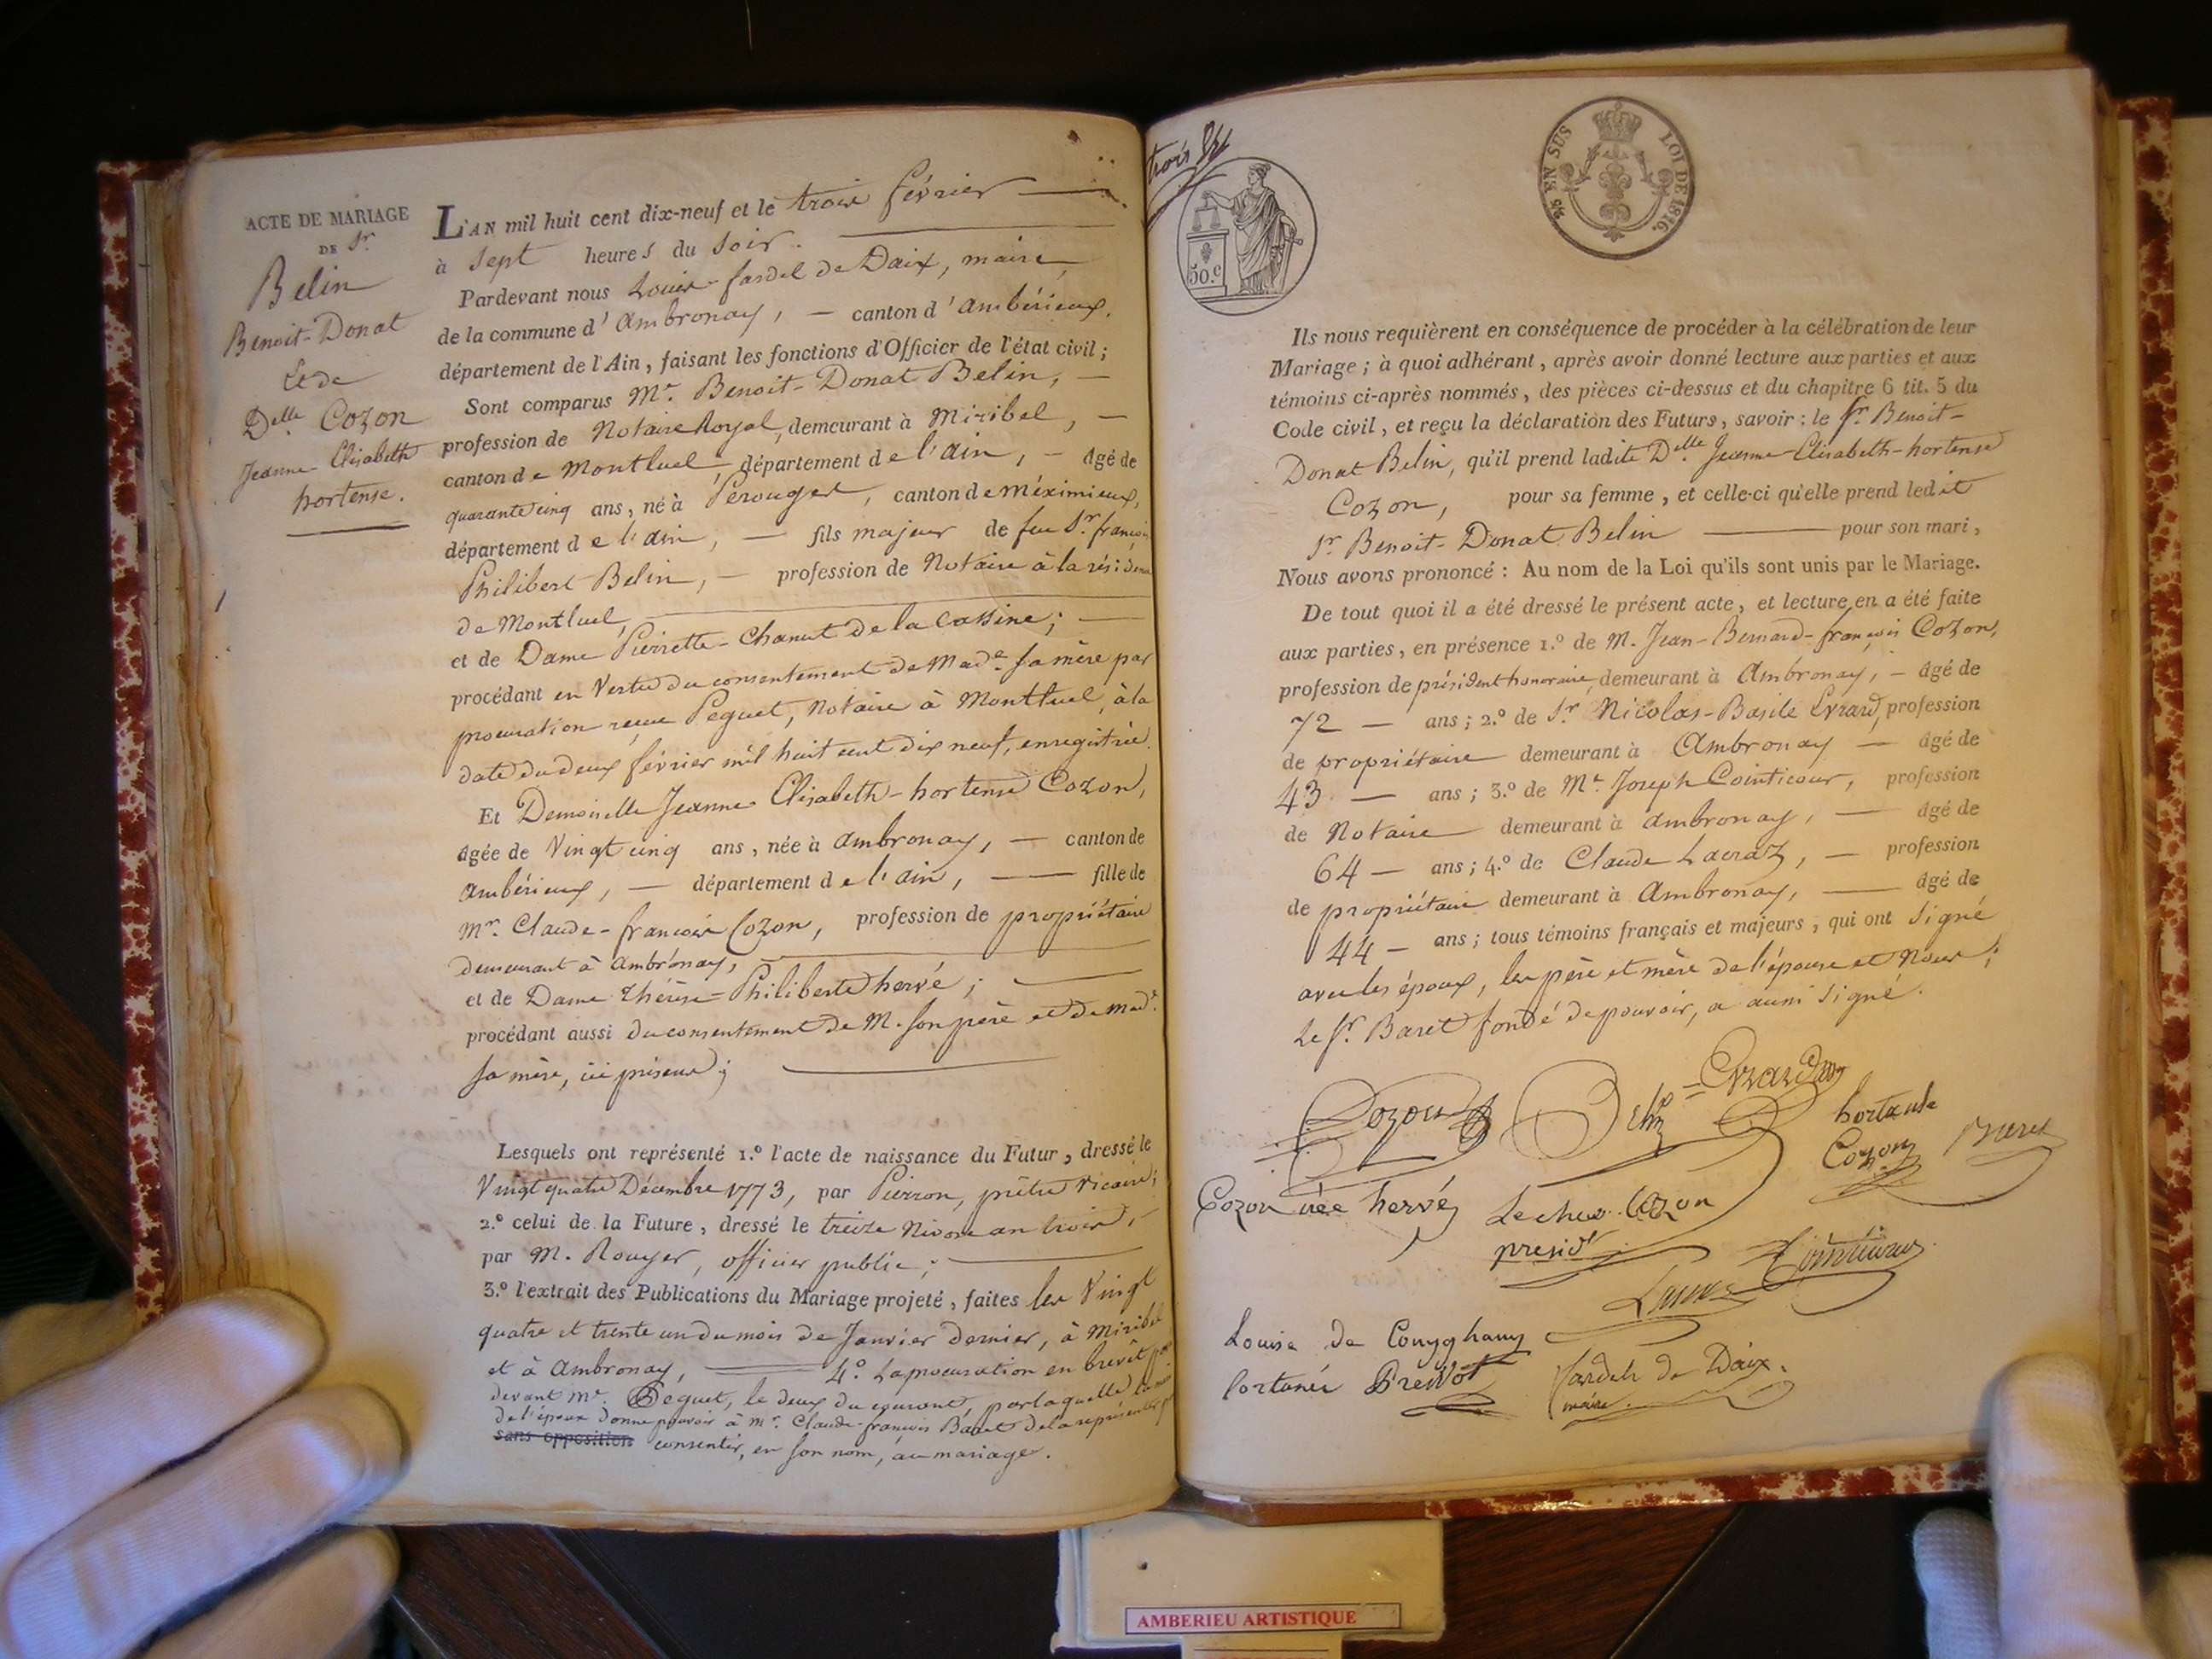 ACTE DE MARIAGE
DE Sr.
Belin
Benoit-Donat
Et de
Delle Cozon
Jeanne-Elisabeth
hortense.
L'AN mil huit cent dix-neuf et le trois février
à sept heures du soir.
Pardevant nous Louis fardel de Daix, maire
de la commune d'Ambronay, — canton d'ambérieux,
département de l'Ain, faisant les fonctions d'Officier de l'état civil;
Sont comparus Mr. Benoit-Donat Belin, —
profession de Notaire Royal, demeurant à Miribel, —
canton de Montluel, département de l'ain, — âgé de
quarante cinq ans, né à Pérouges, canton de méximieux,
département de l'ain, — fils majeur de feu Sr. françois
Philibert Belin, — profession de Notaire à la résidence
de Montluel,
et de Dame Pierrette-Chanut de la Cassine; —
procédant en Vertu du consentement de Made. sa mère par
procuration reçue Peguet, Notaire à Montluel, à la
date du deux février mil huit cent dix neuf, enregistrée.
Et Demoiselle Jeanne-Elisabeth-hortense Cozon,
âgée de Vingt cinq ans, née à ambronay, — canton de
ambérieux, — département de l'ain, — fille de
Mr. Claude-françois Cozon, profession de propriétaire
demeurant à ambronay,
et de Dame Thérèse-Philiberte hervé;
procédant aussi du consentement de M. son père et de made.
sa mère, ici présens;
Lesquels ont représenté 1.º l'acte de naissance du Futur, dressé le
Vingt quatre Décembre 1773, par Pierron, prêtre vicaire;
2.º celui de la Future, dressé le treize Nivose an trois, —
par M. Rouyer, officier public;
3.º l'extrait des Publications du Mariage projeté, faites les Vingt
quatre et trente un du mois de Janvier dernier, à Miribel
et à ambronay, — 4.º La procuration en brevet par
devant Me. Peguet, le deux du courant, par laquelle la mère
de l'époux donne pouvoir à Mr. Claude-françois Baret de la représenter
sans opposition consentir, en son nom, au mariage.
trois
50.c
EN SUS
LOI DE 1816.
Ils nous requièrent en conséquence de procéder à la célébration de leur
Mariage; à quoi adhérant, après avoir donné lecture aux parties et aux
témoins ci-après nommés, des pièces ci-dessus et du chapitre 6 tit. 5 du
Code civil, et reçu la déclaration des Futurs, savoir: le Sr. Benoit-
Donat Belin, qu'il prend ladite Delle Jeanne-Elisabeth-hortense
Cozon, pour sa femme, et celle-ci qu'elle prend ledit
Sr. Benoit-Donat Belin — pour son mari,
Nous avons prononcé: Au nom de la Loi qu'ils sont unis par le Mariage.
De tout quoi il a été dressé le présent acte, et lecture en a été faite
aux parties, en présence 1.º de M. Jean-Bernard-françois Cozon,
profession de président honoraire, demeurant à Ambronay, — âgé de
72 — ans; 2.º de Sr. Nicolas-Basile Evrard, profession
de propriétaire demeurant à Ambronay — âgé de
43 — ans; 3.º de Me. Joseph Cointicour, profession
de Notaire demeurant à ambronay, — âgé de
64 — ans; 4.º de Claude Lacraz, — profession
de propriétaire demeurant à Ambronay, — âgé de
44 — ans; tous témoins français et majeurs, qui ont signé
avec les époux, les père et mère de l'épouse et Nous;
Le Sr. Baret fondé de pouvoir, a aussi signé.
Cozon Belin Evrard
hortense
Cozon Baret
Cozon née hervé Le cher. Cozon
presidt
Cointicour
Louise de Conygham
fortunée Prevot fardel de Daix.
maire.
AMBERIEU ARTISTIQUE